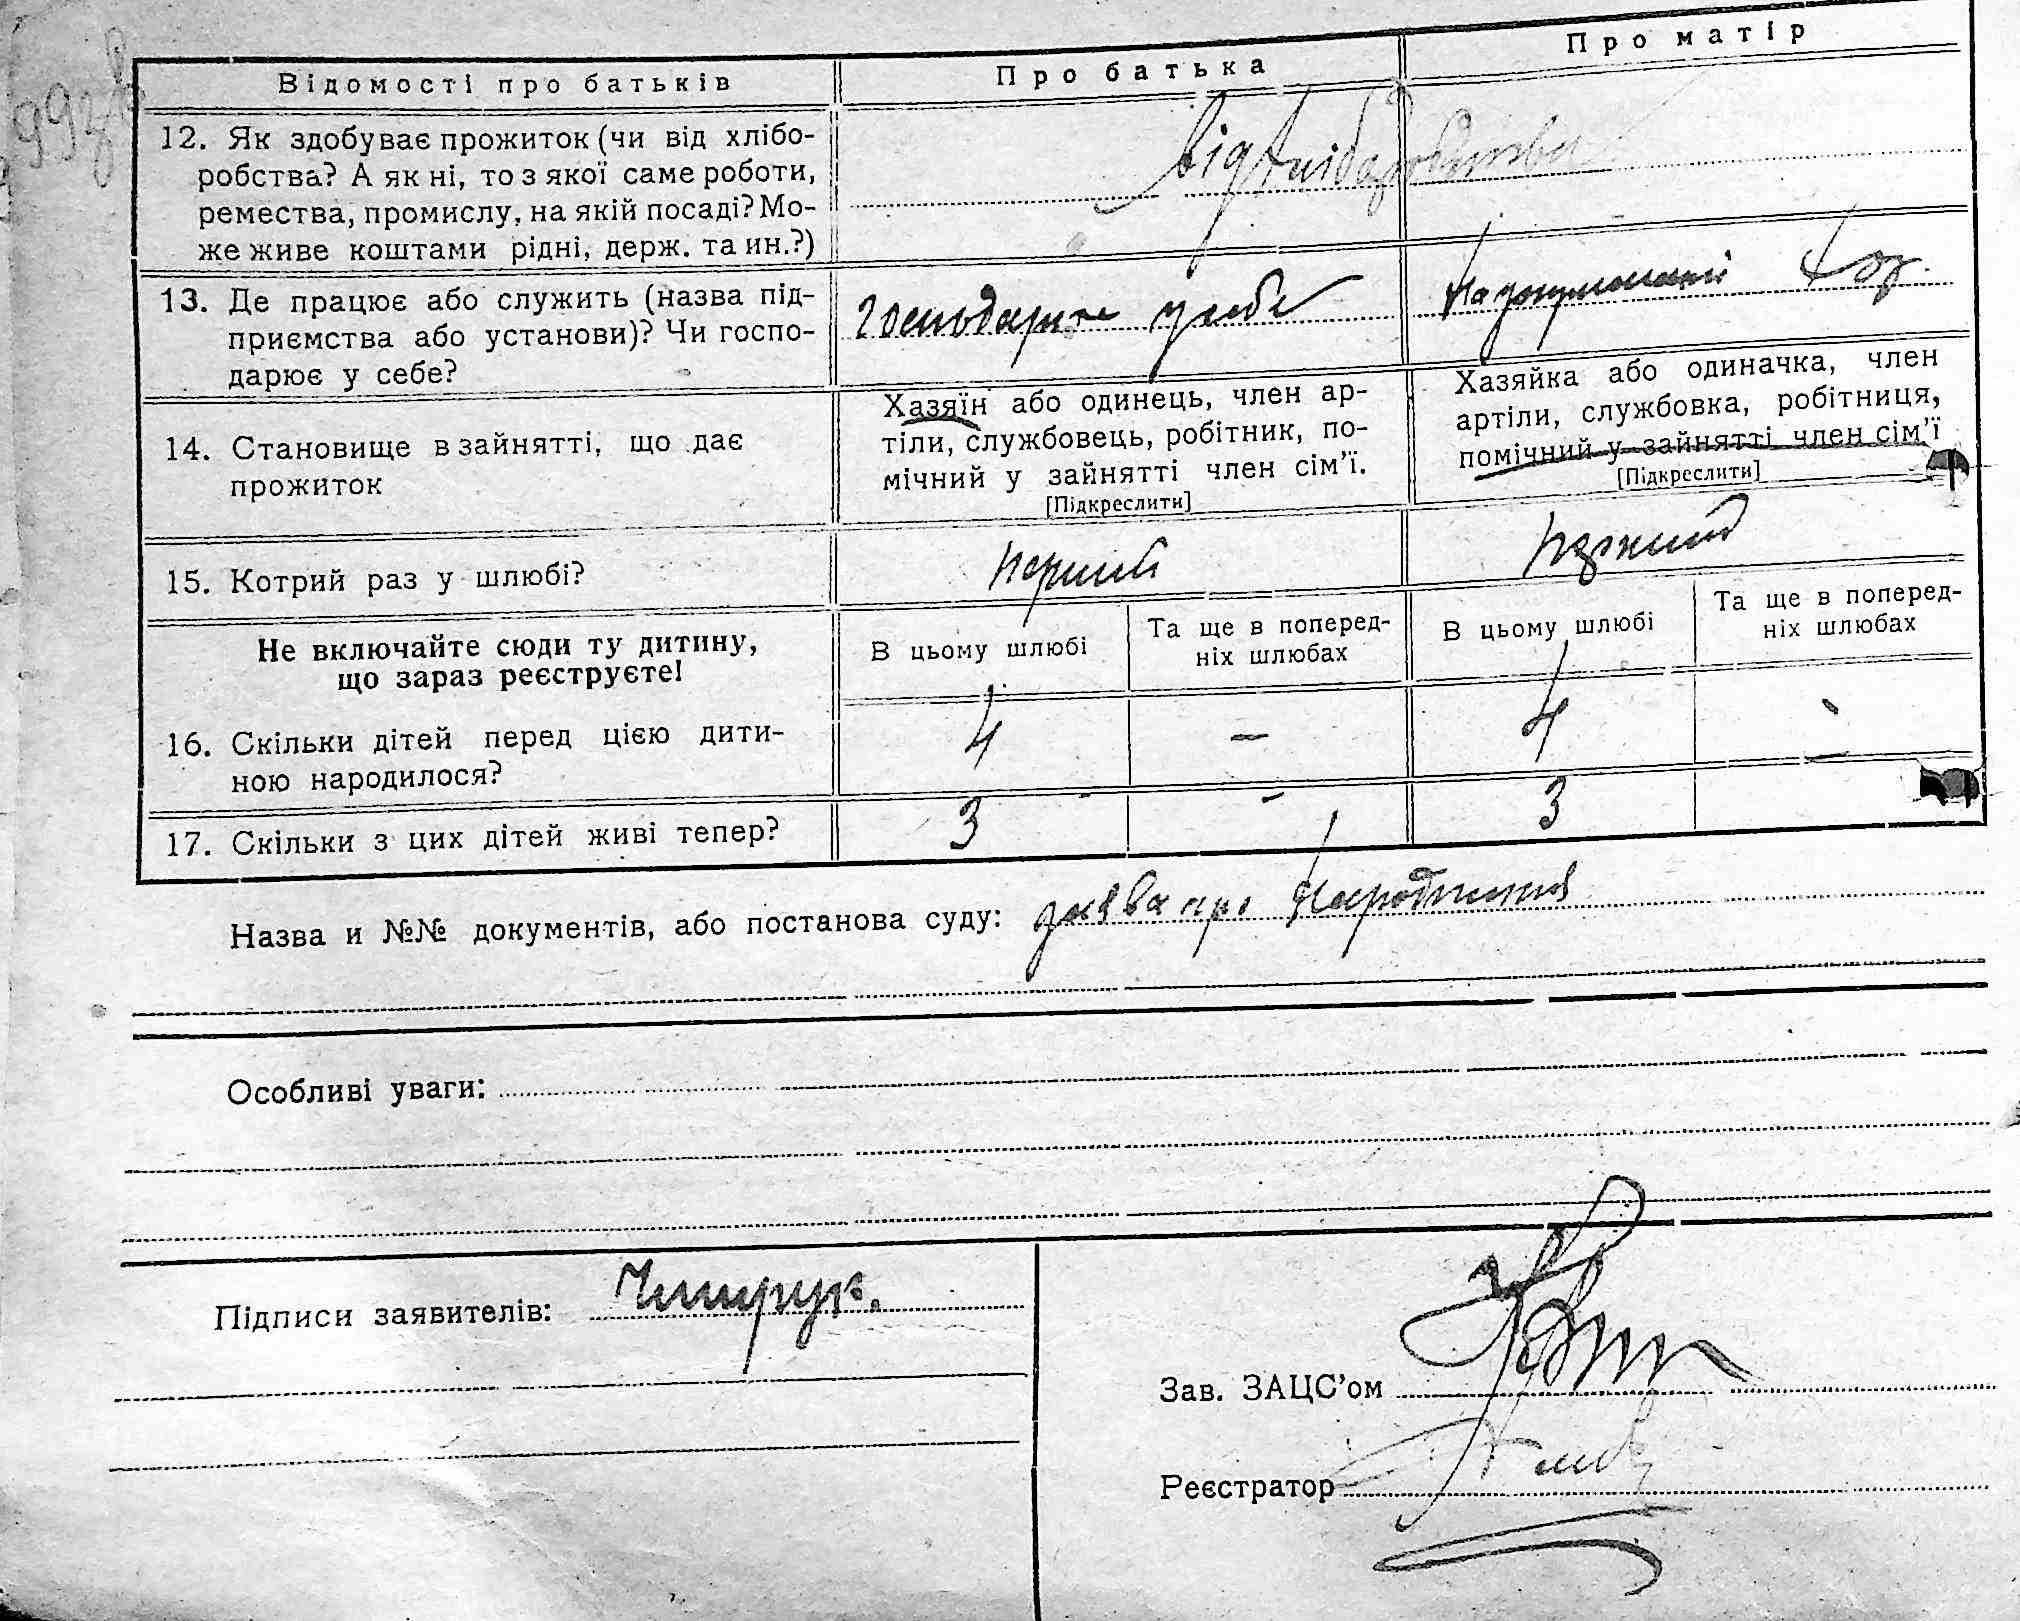 Відомості про батьків
Про батька
Про матір
12. Як здобуває прожиток (чи від хлібо-
робства? А як ні, то з якої саме роботи,
ремества, промислу, на якій посаді? Мо-
же живе коштами рідні, держ. та ин.?)
від хліборобства
13. Де працює або служить (назва під-
приємства або установи)? Чи госпо-
дарює у себе?
господарює у себе
на утриманні
14. Становище в зайнятті, що дає
прожиток
Хазяїн або одинець, член ар-
тіли, службовець, робітник, по-
мічний у зайнятті член сім'ї.
[Підкреслити]
Хазяйка або одиначка, член
артіли, службовка, робітниця,
помічний у зайнятті член сім'ї
[Підкреслити]
15. Котрий раз у шлюбі?
перший
перший
Не включайте сюди ту дитину,
що зараз реєструєте!
В цьому шлюбі
Та ще в поперед-
ніх шлюбах
В цьому шлюбі
Та ще в поперед-
ніх шлюбах
16. Скільки дітей перед цією дити-
ною народилося?
4 – 4 -
17. Скільки з цих дітей живі тепер?
3 - 3
Назва и №№ документів, або постанова суду: заява про народження
Особливі уваги:
Підписи заявителів:
Зав. ЗАЦС'ом
Реєстратор